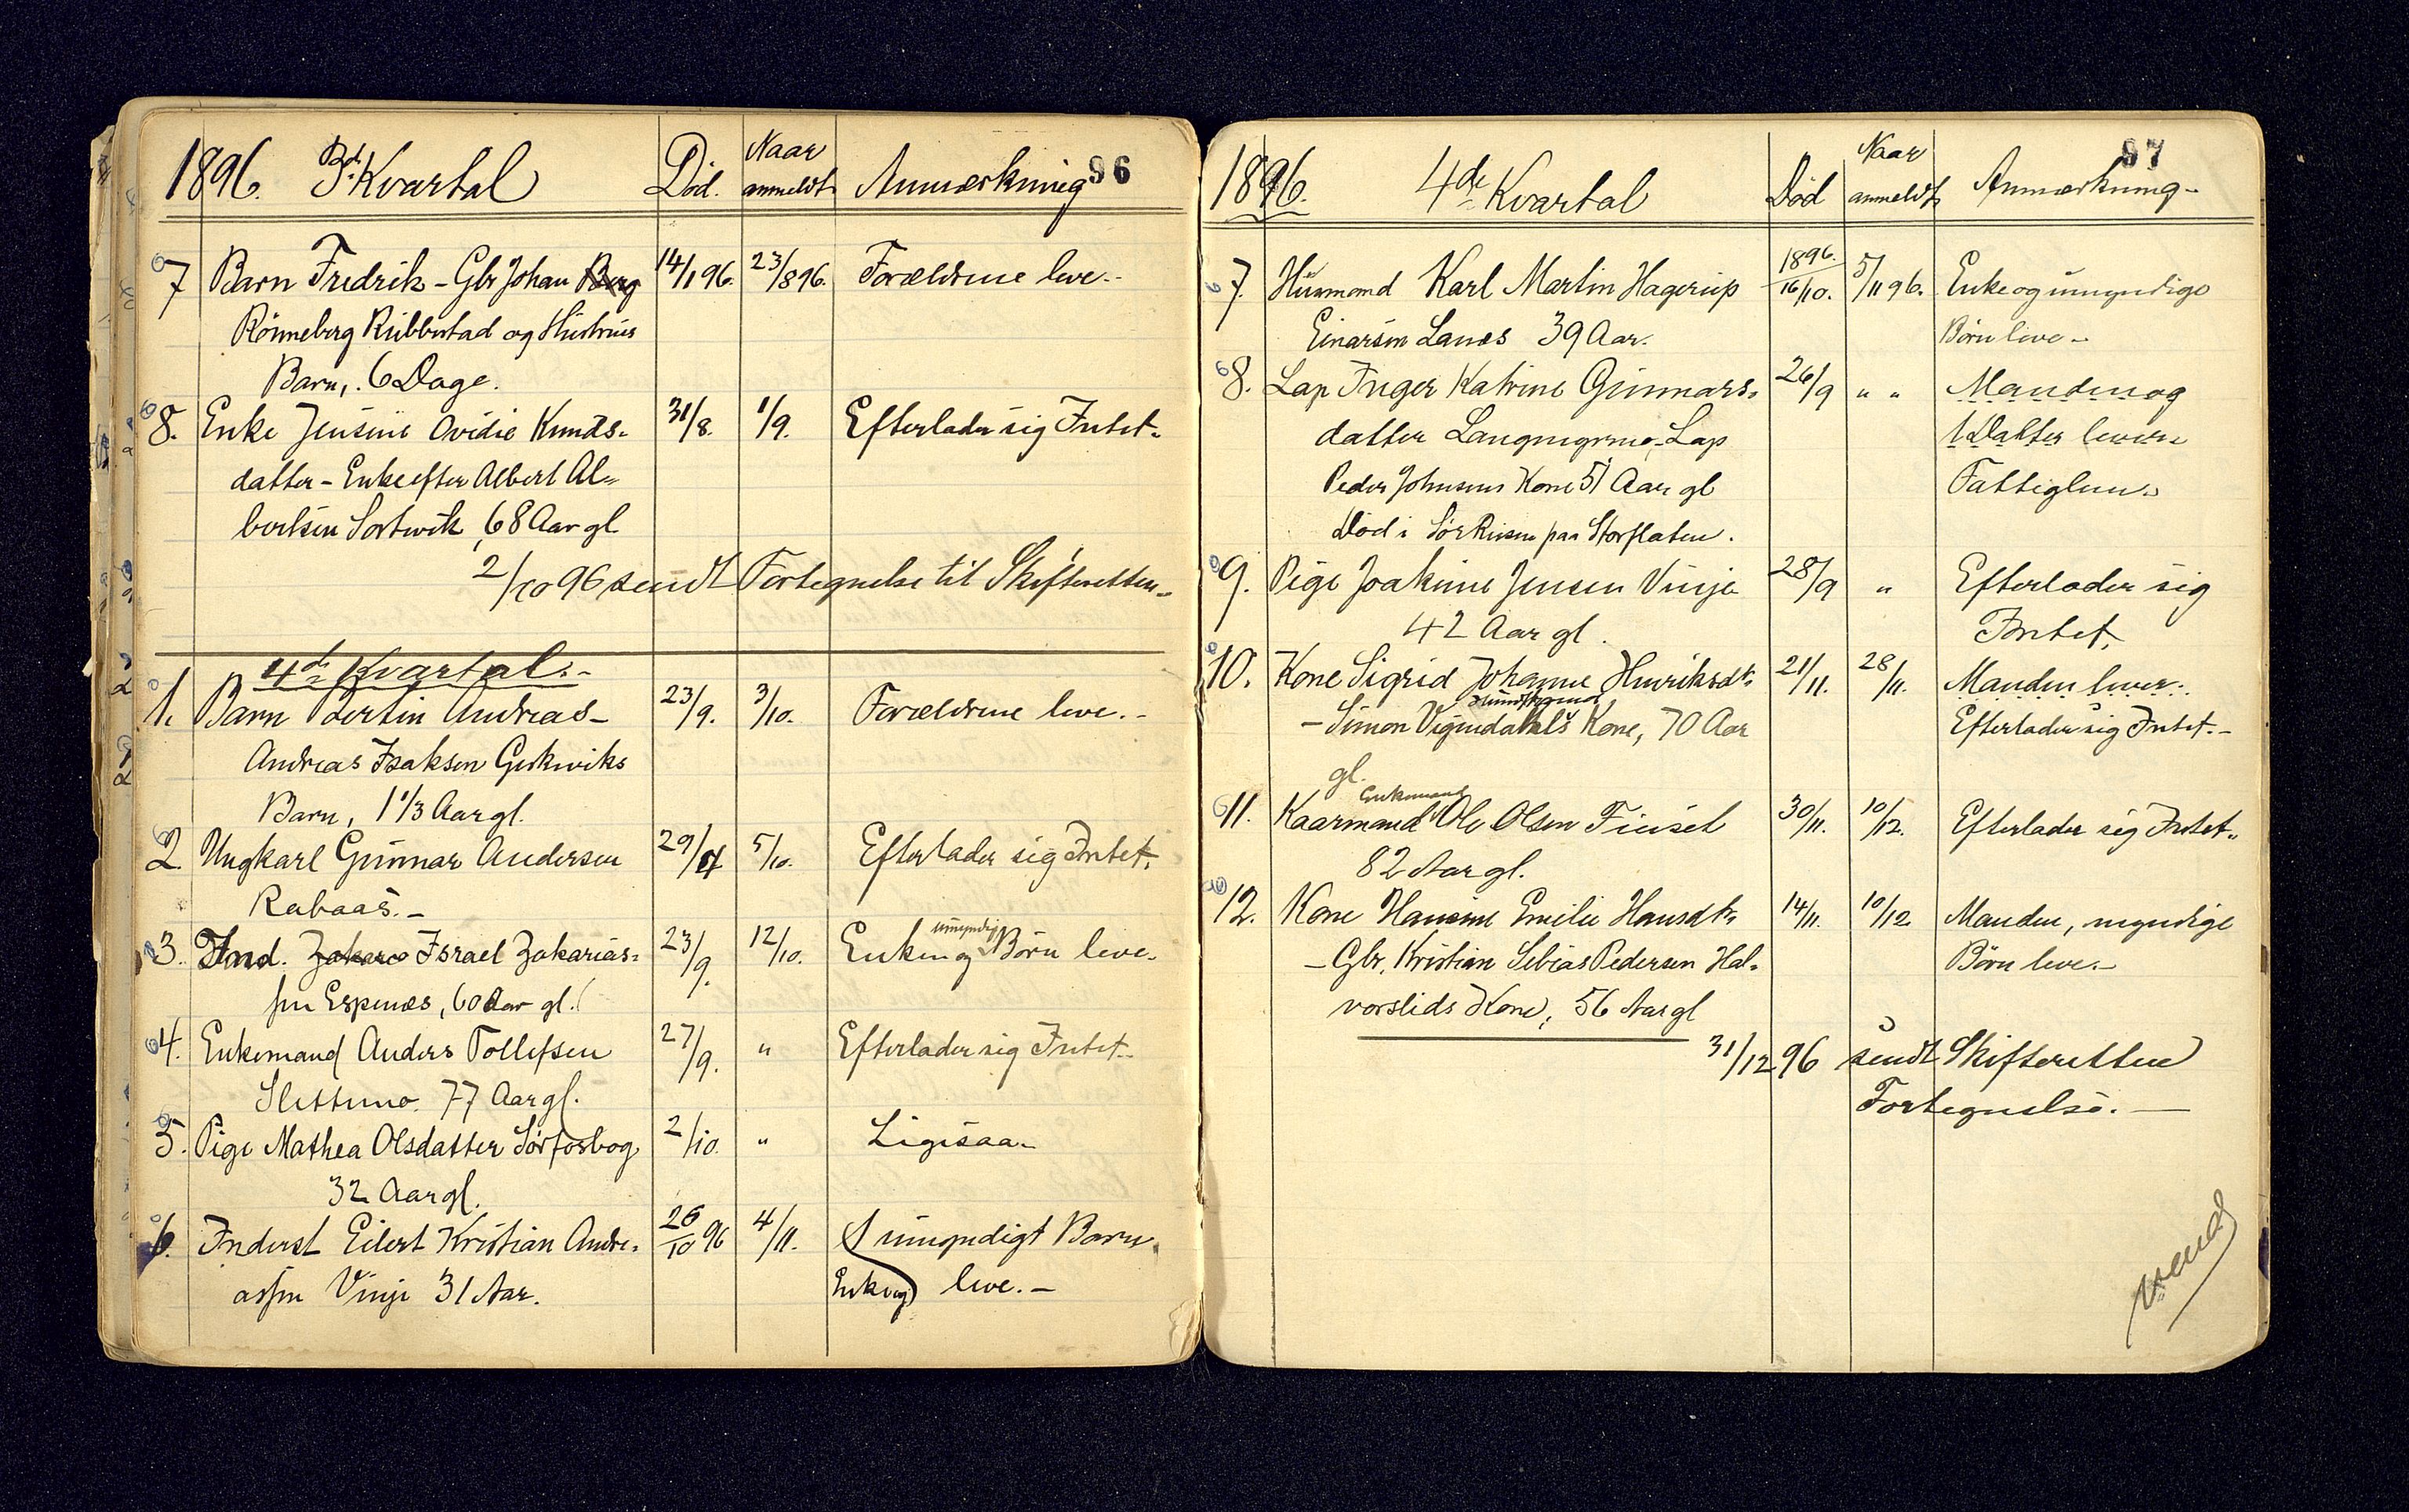 1896. 3d. Kvartal Död. Naar anmeldt Anmærkning 96
7 Barn Fredrik - Gbr Johan Berg 14/1 96. 23/8 96. Forældrene leve. -
Rönneberg Rubbestad og Hustrues
Barn, 6 Dage.
8. Enke Jensine Ovidie Knuds- 31/8. 1/9. Efterlader sig Intet.
datter - Enke efter Albert Al-
bertsen Sortvik, 68 Aar gl.
2/10 96 sendt Fortegnelse til Skifteretten.
4de Kvartal. -
1. Barn Bertin Andreas - 23/9. 3/10. Forældrene leve. -
Andreas Isaksen Geskviks
Barn, 1 1/3 Aar gl.
2. Ungkarl Gunnar Andersen 29/4 5/10. Efterlader sig Intet.
Rabaas. -
3. Ind. Zakario Israel Zakarias- 23/9. 12/10. Enken og umyndig Börn leve.
sen Espenæs, 60 Aar gl.
4. Enkemand Anders Tollefsen 27/9. " Efterlader sig Intet.
Slettmo. 77 Aar gl.
5. Pige Mathea Olsdatter Sörfosbog 2/10. " Ligesaa.
32 Aar gl.
6. Inderst Eilert Kristian Andre- 26/10 96 4/11. 1 umyndigt Barn.
assen Vinje 31 Aar. Enke og leve. -
1896. 4de Kvartal Död Naar anmeldt Anmærkning - 97
7. Husmand Karl Martin Hagerup 1896. 16/10. 5/11 96. Enke og umyndige
Einarsen Lanes 39 Aar. Börn leve -
8. Lap Inger Katrine Gunnars- 26/9 " " Manden og
datter Lap 1 Datter lever
Peder Johnsens Kone 51 Aar gl Fattiglem.
Död i paa Storflaten.
9. Pige Joakime Jensen Vinje 28/9 " Efterlader sig
42 Aar gl. Intet.
10. Kone Sigrid Johanne Henriksdtr 21/11. 28/11. Manden lever.
- Simon Kone, 70 Aar Efterlader sig Intet. -
gl.
Enkemand
11. Kaarmand Ole Olsen Finset 30/11. 10/12. Efterlader sig Intet.
82 Aar gl.
12. Kone Hansine Emilie Hansdtr 14/11. 10/12. Manden, myndige
- Gbr. Kristian Sebias Pedersen Hal- Börn leve. -
vorslids Kone, 56 Aar gl
31/12 96 sendt Skifteretten
Fortegnelse. -
Vend